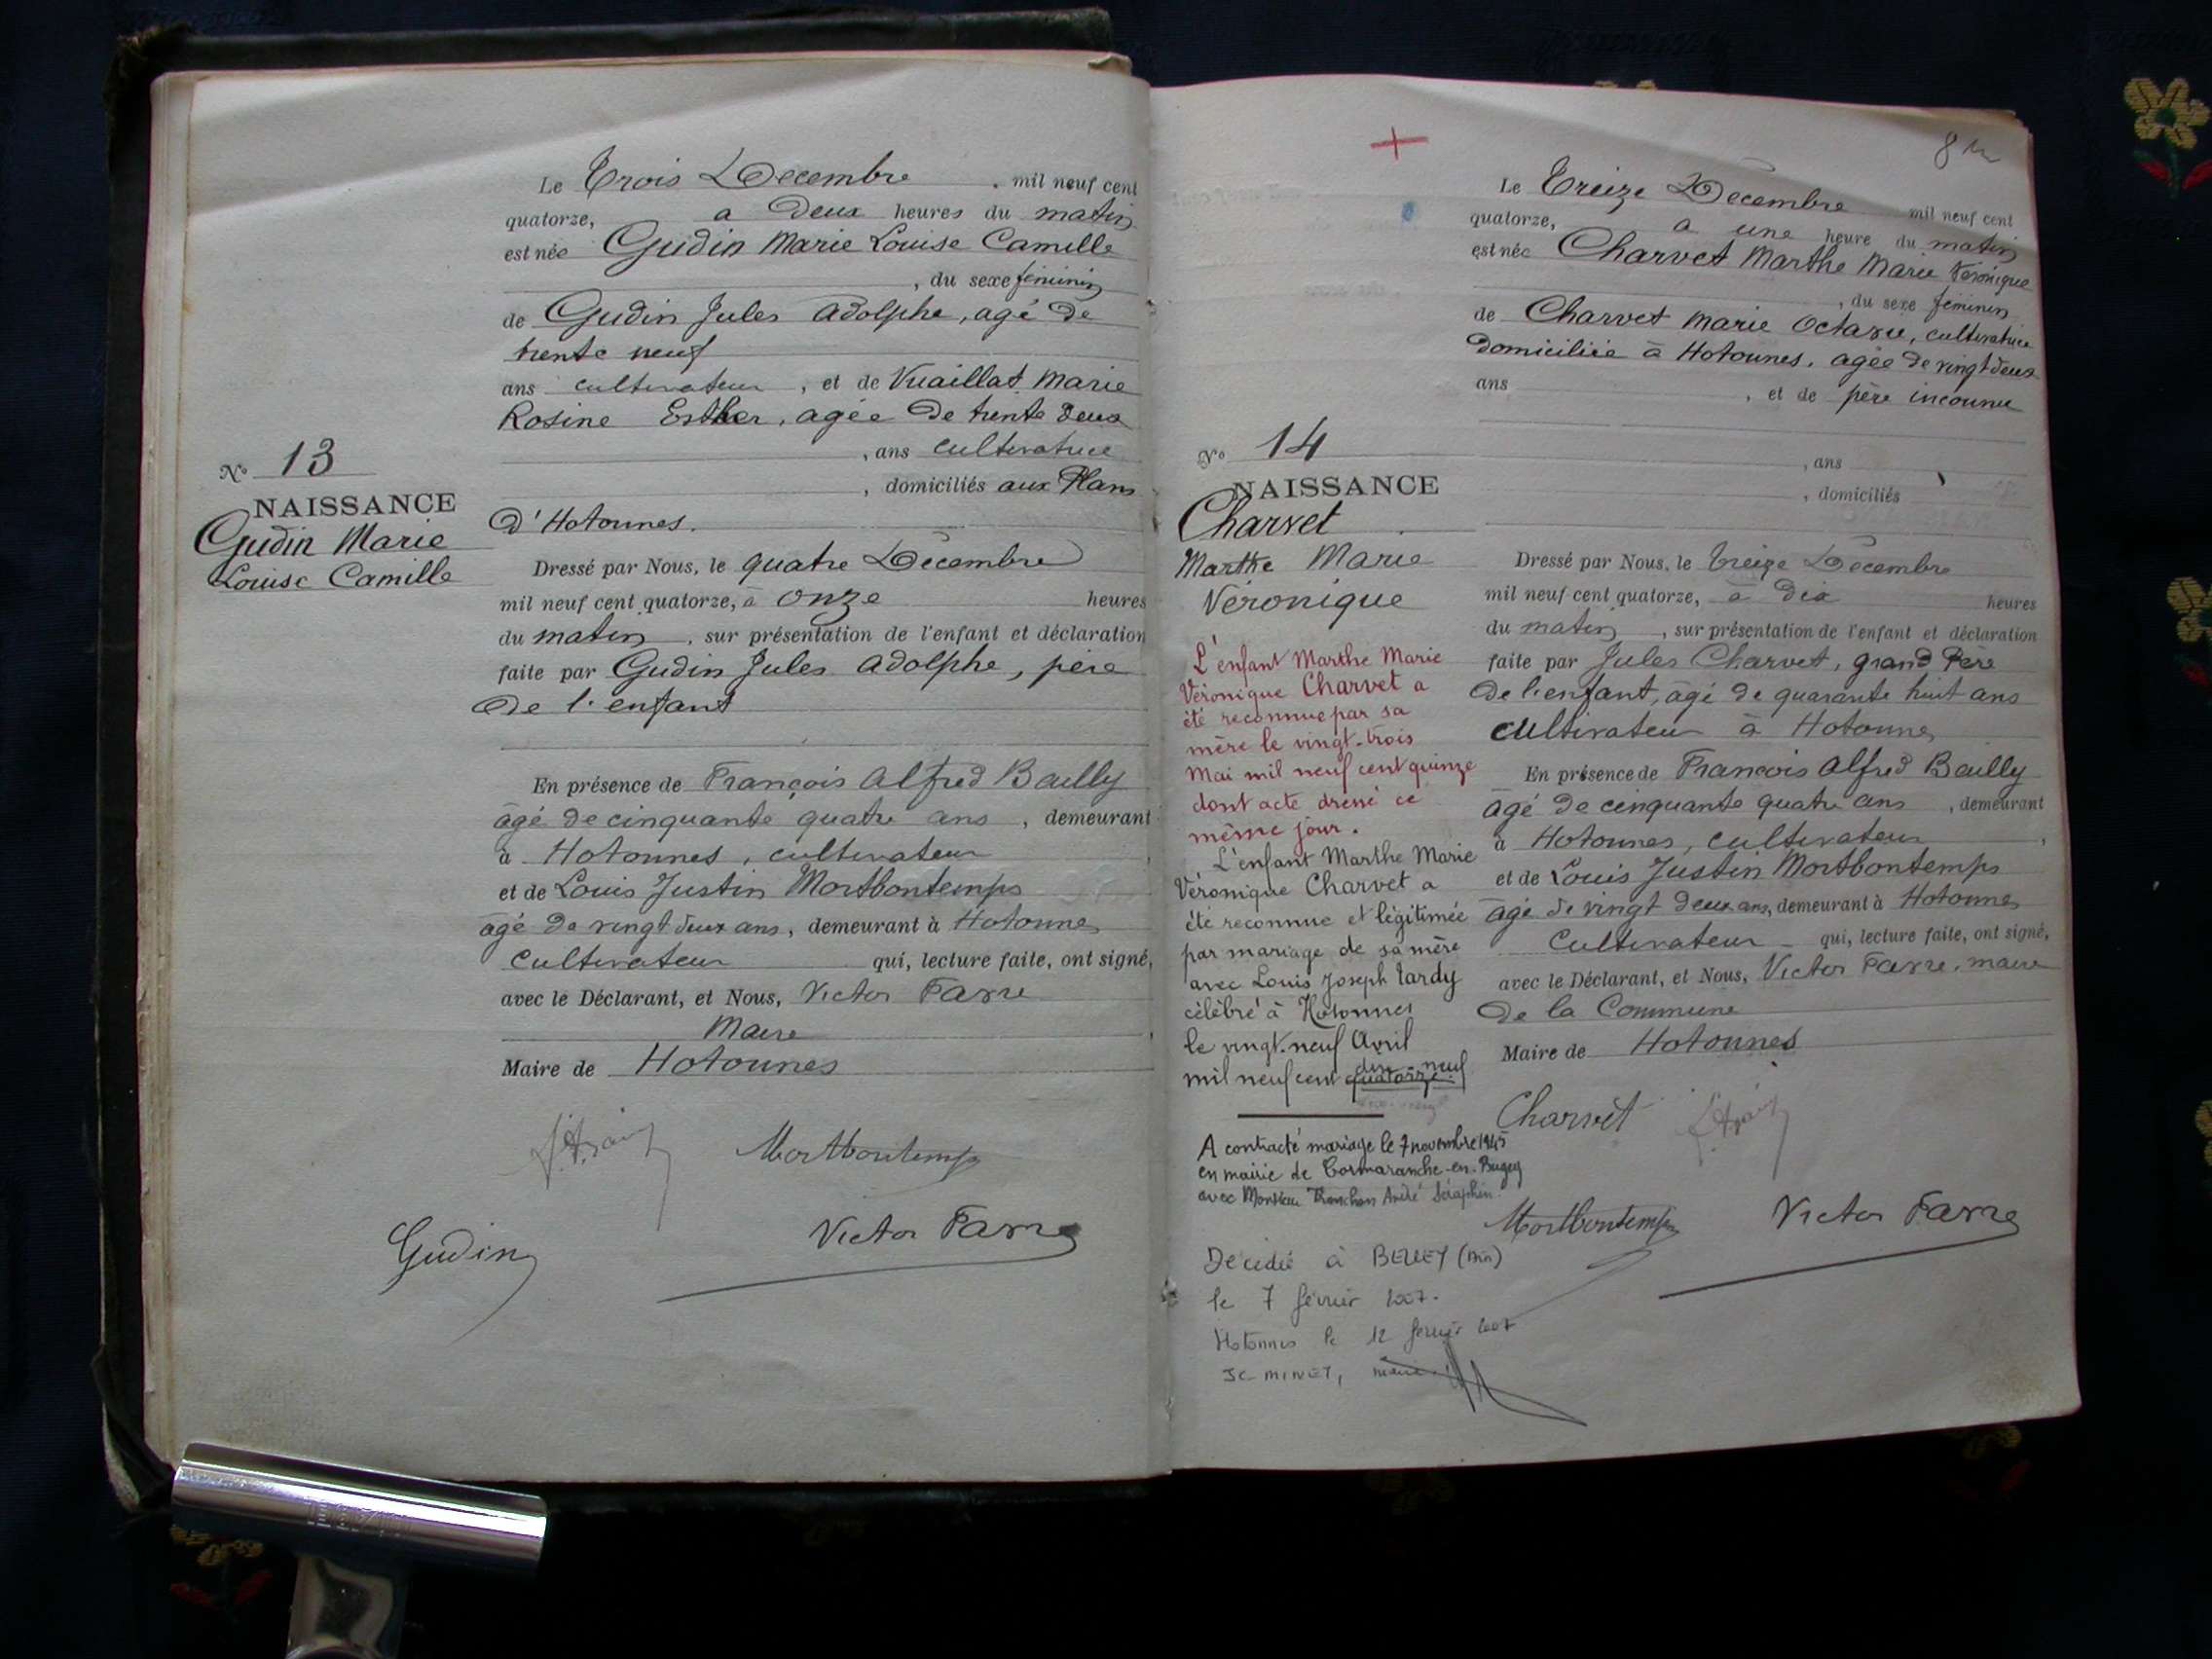 Le Trois Décembre, mil neuf cent
quatorze, à Deux heures du matin
est née Gudin Marie Louise Camille
, du sexe féminin
de Gudin Jules Adolphe, agé de
trente neuf
ans cultivateur, et de Vuaillat Marie
Rosine Esther, agée de trente deux
, ans cultivatrice
, domiciliés aux Plans
d'Hotonnes.
N° 13
NAISSANCE
Gudin Marie
Louise Camille
Dressé par Nous, le quatre Décembre
mil neuf cent quatorze, à onze heures
du matin, sur présentation de l'enfant et déclaration
faite par Gudin Jules Adolphe, père
de l'enfant
En présence de François Alfred Bailly
âgé de cinquante quatre ans, demeurant
à Hotonnes, cultivateur
et de Louis Justin Mortbontemps
âgé de vingt deux ans, demeurant à Hotonnes
cultivateur qui, lecture faite, ont signé,
avec le Déclarant, et Nous, Victor Favre
Maire
Maire de Hotonnes
Mortbontemps
Gudin
Victor Favre
Le Treize Décembre mil neuf cent
quatorze, à une heure du matin
est née Charvet Marthe Marie Véronique
, du sexe féminin
de Charvet Marie Octavie, cultivatrice
domiciliée à Hotonnes, agée de vingt deux
ans, et de père inconnu
, ans
, domiciliés
N° 14
NAISSANCE
Charvet
Marthe Marie
Véronique
L'enfant Marthe Marie
Véronique Charvet a
été reconnue par sa
mère le vingt-trois
Mai mil neuf cent quinze
dont acte dressé ce
même jour.
L'enfant Marthe Marie
Véronique Charvet a
été reconnue et légitimée
par mariage de sa mère
avec Louis Joseph Tardy
célébré à Hotonnes
le vingt-neuf Avril
mil neuf cent quatorze dix neuf
A contracté mariage le 7 novembre 1945
en mairie de Cormaranche-en-Bugey
avec Monsieur Tronchon André Séraphin.
Décédée à BELLEY (Ain)
le 7 février 2007.
Hotonnes le 12 février 2007
JC MINET, maire
Dressé par Nous, le treize Décembre
mil neuf cent quatorze, à dix heures
du matin, sur présentation de l'enfant et déclaration
faite par Jules Charvet, grand Père
de l'enfant, âgé de quarante huit ans
cultivateur à Hotonnes
En présence de François Alfred Bailly
âgé de cinquante quatre ans, demeurant
à Hotonnes, cultivateur
et de Louis Justin Mortbontemps
âgé de vingt deux ans, demeurant à Hotonnes
Cultivateur qui, lecture faite, ont signé,
avec le Déclarant, et Nous, Victor Favre, maire
de la Commune
Maire de Hotonnes
Charvet
Mortbontemps
Victor Favre